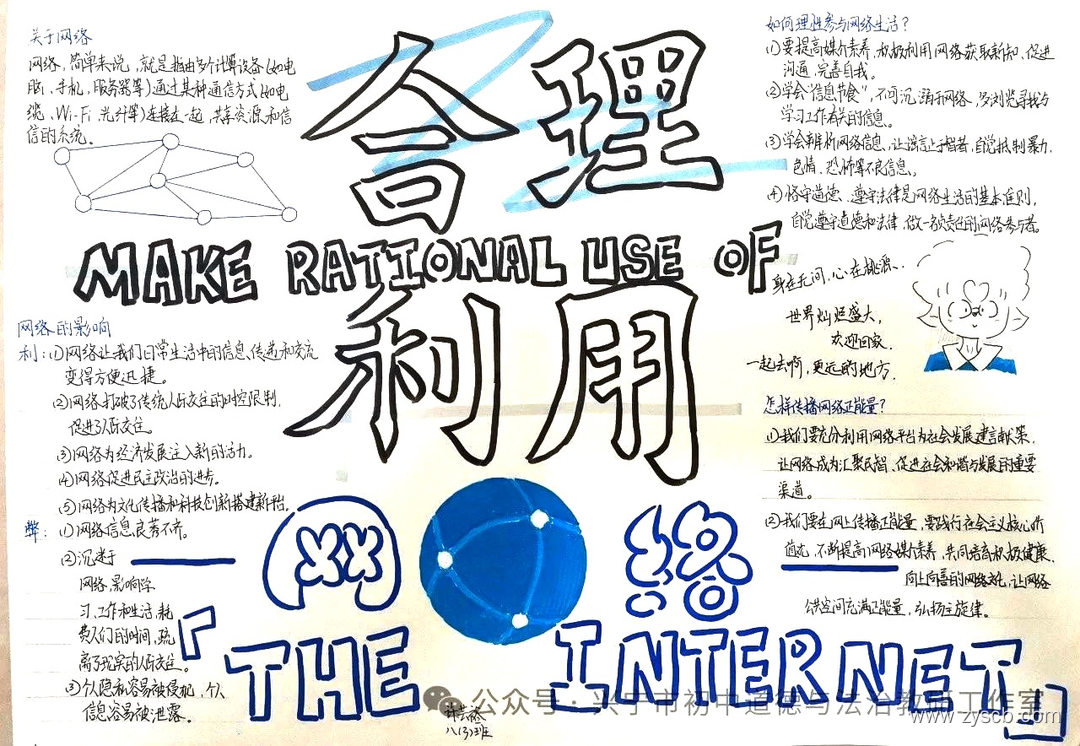 关于网络
网络,简单来说,就是指由多个计算设备(如电
脑、手机、服务器等)通过某种通信方式(如电
缆、Wi-Fi、光纤等)连接在一起,共享资源和信
信的系统。
合理
MAKE RATIONAL USE OF
利用
网络
「THE INTERNET」
网络的影响
利:①网络让我们日常生活中的信息传递和交流
变得方便迅捷。
②网络打破了传统人际交往的时空限制,
促进人际交往。
③网络为经济发展注入新的活力。
④网络促进民主政治的进步。
⑤网络为文化传播和科技创新搭建新平台。
弊:①网络信息良莠不齐。
②沉迷于
网络,影响学
习、工作和生活,耗
费人们的时间,疏
离了现实的人际交往。
③个人隐私容易被侵犯,个人
信息容易被泄露。
如何理性参与网络生活?
①要提高媒介素养,积极利用网络获取新知、促进
沟通、完善自我。
②学会“信息节食”,不可沉溺于网络,多浏览寻找与
学习工作有关的信息。
③学会辨析网络信息,让谣言止于智者,自觉抵制暴力、
色情、恐怖等不良信息。
④恪守道德、遵守法律是网络生活的基本准则,
自觉遵守道德和法律,做一名负责任的网络参与者。
身在无间,心在桃源..
世界灿烂盛大,
欢迎回家.
一起去啊,更远的地方.
怎样传播网络正能量?
①我们要充分利用网络平台为社会发展建言献策,
让网络成为汇聚民智、促进社会和谐与发展的重要
渠道。
②我们要在网上传播正能量,要践行社会主义核心价
值观,不断提高网络媒介素养,共同培育积极健康、
向上向善的网络文化,让网络
公共空间充满正能量、弘扬主旋律。
八(3)班
公众号·兴宁市初中道德与法治教师工作室
www.zyscb.com